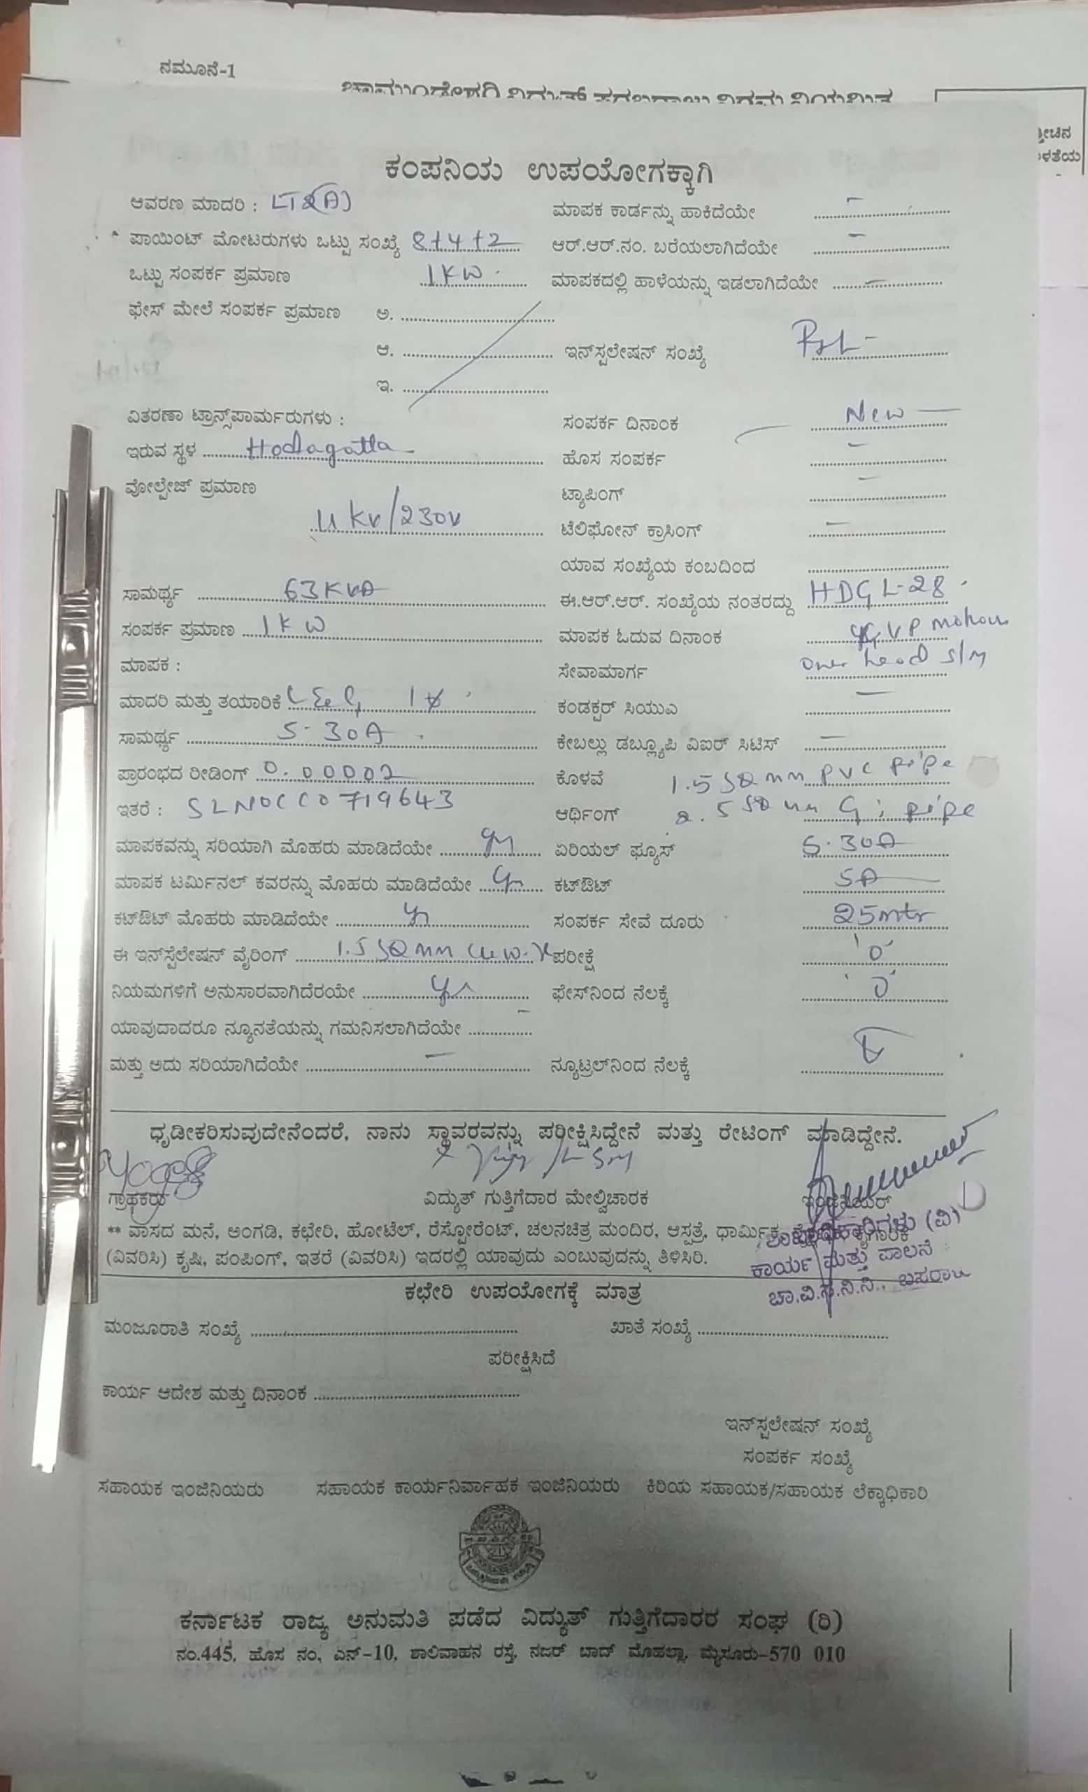 ನಮೂನೆ-1
ಕಂಪನಿಯ ಉಪಯೋಗಕ್ಕಾಗಿ
ಆವರಣ ಮಾದರಿ : LT2(A)
ಮಾಪಕ ಕಾರ್ಡನ್ನು ಹಾಕಿದೆಯೇ –
ಪಾಯಿಂಟ್ ಮೋಟರುಗಳು ಒಟ್ಟು ಸಂಖ್ಯೆ 8+4+2
ಆರ್.ಆರ್.ನಂ. ಬರೆಯಲಾಗಿದೆಯೇ –
ಒಟ್ಟು ಸಂಪರ್ಕ ಪ್ರಮಾಣ 1KW
ಮಾಪಕದಲ್ಲಿ ಹಾಳೆಯನ್ನು ಇಡಲಾಗಿದೆಯೇ –
ಫೇಸ್ ಮೇಲೆ ಸಂಪರ್ಕ ಪ್ರಮಾಣ ಅ.
ಆ.
ಇನ್‌ಸ್ಪಲೇಷನ್ ಸಂಖ್ಯೆ
ಇ.
ವಿತರಣಾ ಟ್ರಾನ್ಸ್‌ಪಾರ್ಮರುಗಳು :
ಸಂಪರ್ಕ ದಿನಾಂಕ New –
ಇರುವ ಸ್ಥಳ Hodagatta
ಹೊಸ ಸಂಪರ್ಕ –
ವೋಲ್ಟೇಜ್ ಪ್ರಮಾಣ
ಟ್ಯಾಪಿಂಗ್ –
11 KV/230V
ಟೆಲಿಫೋನ್ ಕ್ರಾಸಿಂಗ್ –
ಯಾವ ಸಂಖ್ಯೆಯ ಕಂಬದಿಂದ
ಸಾಮರ್ಥ್ಯ 63KVA
ಈ.ಆರ್.ಆರ್. ಸಂಖ್ಯೆಯ ನಂತರದ್ದು HDGL-28
ಸಂಪರ್ಕ ಪ್ರಮಾಣ 1KW
ಮಾಪಕ ಓದುವ ದಿನಾಂಕ
ಮಾಪಕ :
ಸೇವಾಮಾರ್ಗ over head s/m
ಮಾದರಿ ಮತ್ತು ತಯಾರಿಕೆ L&G
ಕಂಡಕ್ಟರ್ ಸಿಯುಎ –
ಸಾಮರ್ಥ್ಯ 5-30A
ಕೇಬಲ್ಲು ಡಬ್ಲ್ಯೂಪಿ ವಿಐರ್ ಸಿಟಿಸ್ –
ಪ್ರಾರಂಭದ ರೀಡಿಂಗ್ 0.00002
ಕೊಳವೆ 1.5 SQ mm PVC pipe
ಇತರೆ : SLNOCC0719643
ಆರ್ಥಿಂಗ್ 2.5 SQ mm G i pipe
ಮಾಪಕವನ್ನು ಸರಿಯಾಗಿ ಮೊಹರು ಮಾಡಿದೆಯೇ
ಏರಿಯಲ್ ಫ್ಯೂಸ್ 5-30A
ಮಾಪಕ ಟರ್ಮಿನಲ್ ಕವರನ್ನು ಮೊಹರು ಮಾಡಿದೆಯೇ
ಕಟ್‌ಔಟ್ 5A
ಕಟ್‌ಔಟ್ ಮೊಹರು ಮಾಡಿದೆಯೇ
ಸಂಪರ್ಕ ಸೇವೆ ದೂರು 25mtr
ಈ ಇನ್‌ಸ್ಪೆಲೇಷನ್ ವೈರಿಂಗ್ 1.5 SQ mm
ಪರೀಕ್ಷೆ '0'
ನಿಯಮಗಳಿಗೆ ಅನುಸಾರವಾಗಿದೆರಯೇ
ಫೇಸ್‌ನಿಂದ ನೆಲಕ್ಕೆ '0'
ಯಾವುದಾದರೂ ನ್ಯೂನತೆಯನ್ನು ಗಮನಿಸಲಾಗಿದೆಯೇ –
ಮತ್ತು ಅದು ಸರಿಯಾಗಿದೆಯೇ –
ನ್ಯೂಟ್ರಲ್‌ನಿಂದ ನೆಲಕ್ಕೆ
ಧೃಡೀಕರಿಸುವುದೇನೆಂದರೆ, ನಾನು ಸ್ಥಾವರವನ್ನು ಪರೀಕ್ಷಿಸಿದ್ದೇನೆ ಮತ್ತು ರೇಟಿಂಗ್ ಮಾಡಿದ್ದೇನೆ.
ಗ್ರಾಹಕರು
ವಿದ್ಯುತ್ ಗುತ್ತಿಗೆದಾರ ಮೇಲ್ವಿಚಾರಕ
** ವಾಸದ ಮನೆ, ಅಂಗಡಿ, ಕಛೇರಿ, ಹೋಟೆಲ್, ರೆಸ್ಟೋರೆಂಟ್, ಚಲನಚಿತ್ರ ಮಂದಿರ, ಆಸ್ಪತ್ರೆ, ಧಾರ್ಮಿಕ
(ವಿವರಿಸಿ) ಕೃಷಿ, ಪಂಪಿಂಗ್, ಇತರೆ (ವಿವರಿಸಿ) ಇದರಲ್ಲಿ ಯಾವುದು ಎಂಬುವುದನ್ನು ತಿಳಿಸಿರಿ.
ಕಾರ್ಯ ಮತ್ತು ಪಾಲನೆ
ಕಛೇರಿ ಉಪಯೋಗಕ್ಕೆ ಮಾತ್ರ
ಮಂಜೂರಾತಿ ಸಂಖ್ಯೆ
ಖಾತೆ ಸಂಖ್ಯೆ
ಪರೀಕ್ಷಿಸಿದೆ
ಕಾರ್ಯ ಆದೇಶ ಮತ್ತು ದಿನಾಂಕ
ಇನ್‌ಸ್ಪಲೇಷನ್ ಸಂಖ್ಯೆ
ಸಂಪರ್ಕ ಸಂಖ್ಯೆ
ಸಹಾಯಕ ಇಂಜಿನಿಯರು ಸಹಾಯಕ ಕಾರ್ಯನಿರ್ವಾಹಕ ಇಂಜಿನಿಯರು ಕಿರಿಯ ಸಹಾಯಕ/ಸಹಾಯಕ ಲೆಕ್ಕಾಧಿಕಾರಿ
ಕರ್ನಾಟಕ ರಾಜ್ಯ ಅನುಮತಿ ಪಡೆದ ವಿದ್ಯುತ್ ಗುತ್ತಿಗೆದಾರರ ಸಂಘ (ರಿ)
ನಂ.445, ಹೊಸ ನಂ, ಎನ್-10, ಶಾಲಿವಾಹನ ರಸ್ತೆ, ನಜರ್ ಬಾದ್ ಮೊಹಲ್ಲಾ, ಮೈಸೂರು-570 010